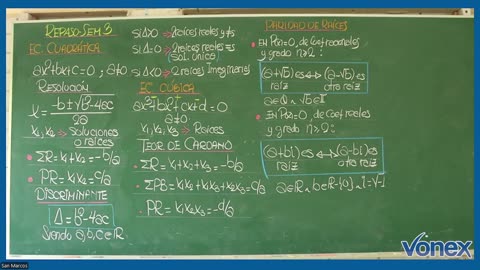 REPASO SEM 3
EC. CUADRÁTICA
ax²+bx+c=0 ; a≠0
RESOLUCIÓN
x = -b±√b²-4ac / 2a
x₁, x₂ → Soluciones
o raíces
• ΣR = x₁+x₂ = -b/a
• PR = x₁x₂ = c/a
DISCRIMINANTE
Δ = b²-4ac
Siendo a,b,c ∈ R
si Δ>0 → 2 raíces reales y ≠s
si Δ=0 → 2 raíces reales =s
(sol. única)
si Δ<0 → 2 raíces imaginarias
EC. CÚBICA
ax³+bx²+cx+d=0
a≠0
x₁, x₂, x₃ → Raíces
TEOR DE CARDANO
• ΣR = x₁+x₂+x₃ = -b/a
• ΣPB = x₁x₂+x₁x₃+x₂x₃ = c/a
• PR = x₁x₂x₃ = -d/a
PARIDAD DE RAÍCES
• EN P(x)=0, de coef racionales
y grado n≥2:
(a+√b) es ↔ (a-√b) es
raíz otra raíz
a∈Q ∧ √b∈I
• EN P(x)=0, de coef reales
y grado n≥2:
(a+bi) es ↔ (a-bi) es
raíz otra raíz
a∈R ∧ b∈R-{0} ∧ i=√-1
San Marcos
VONEX